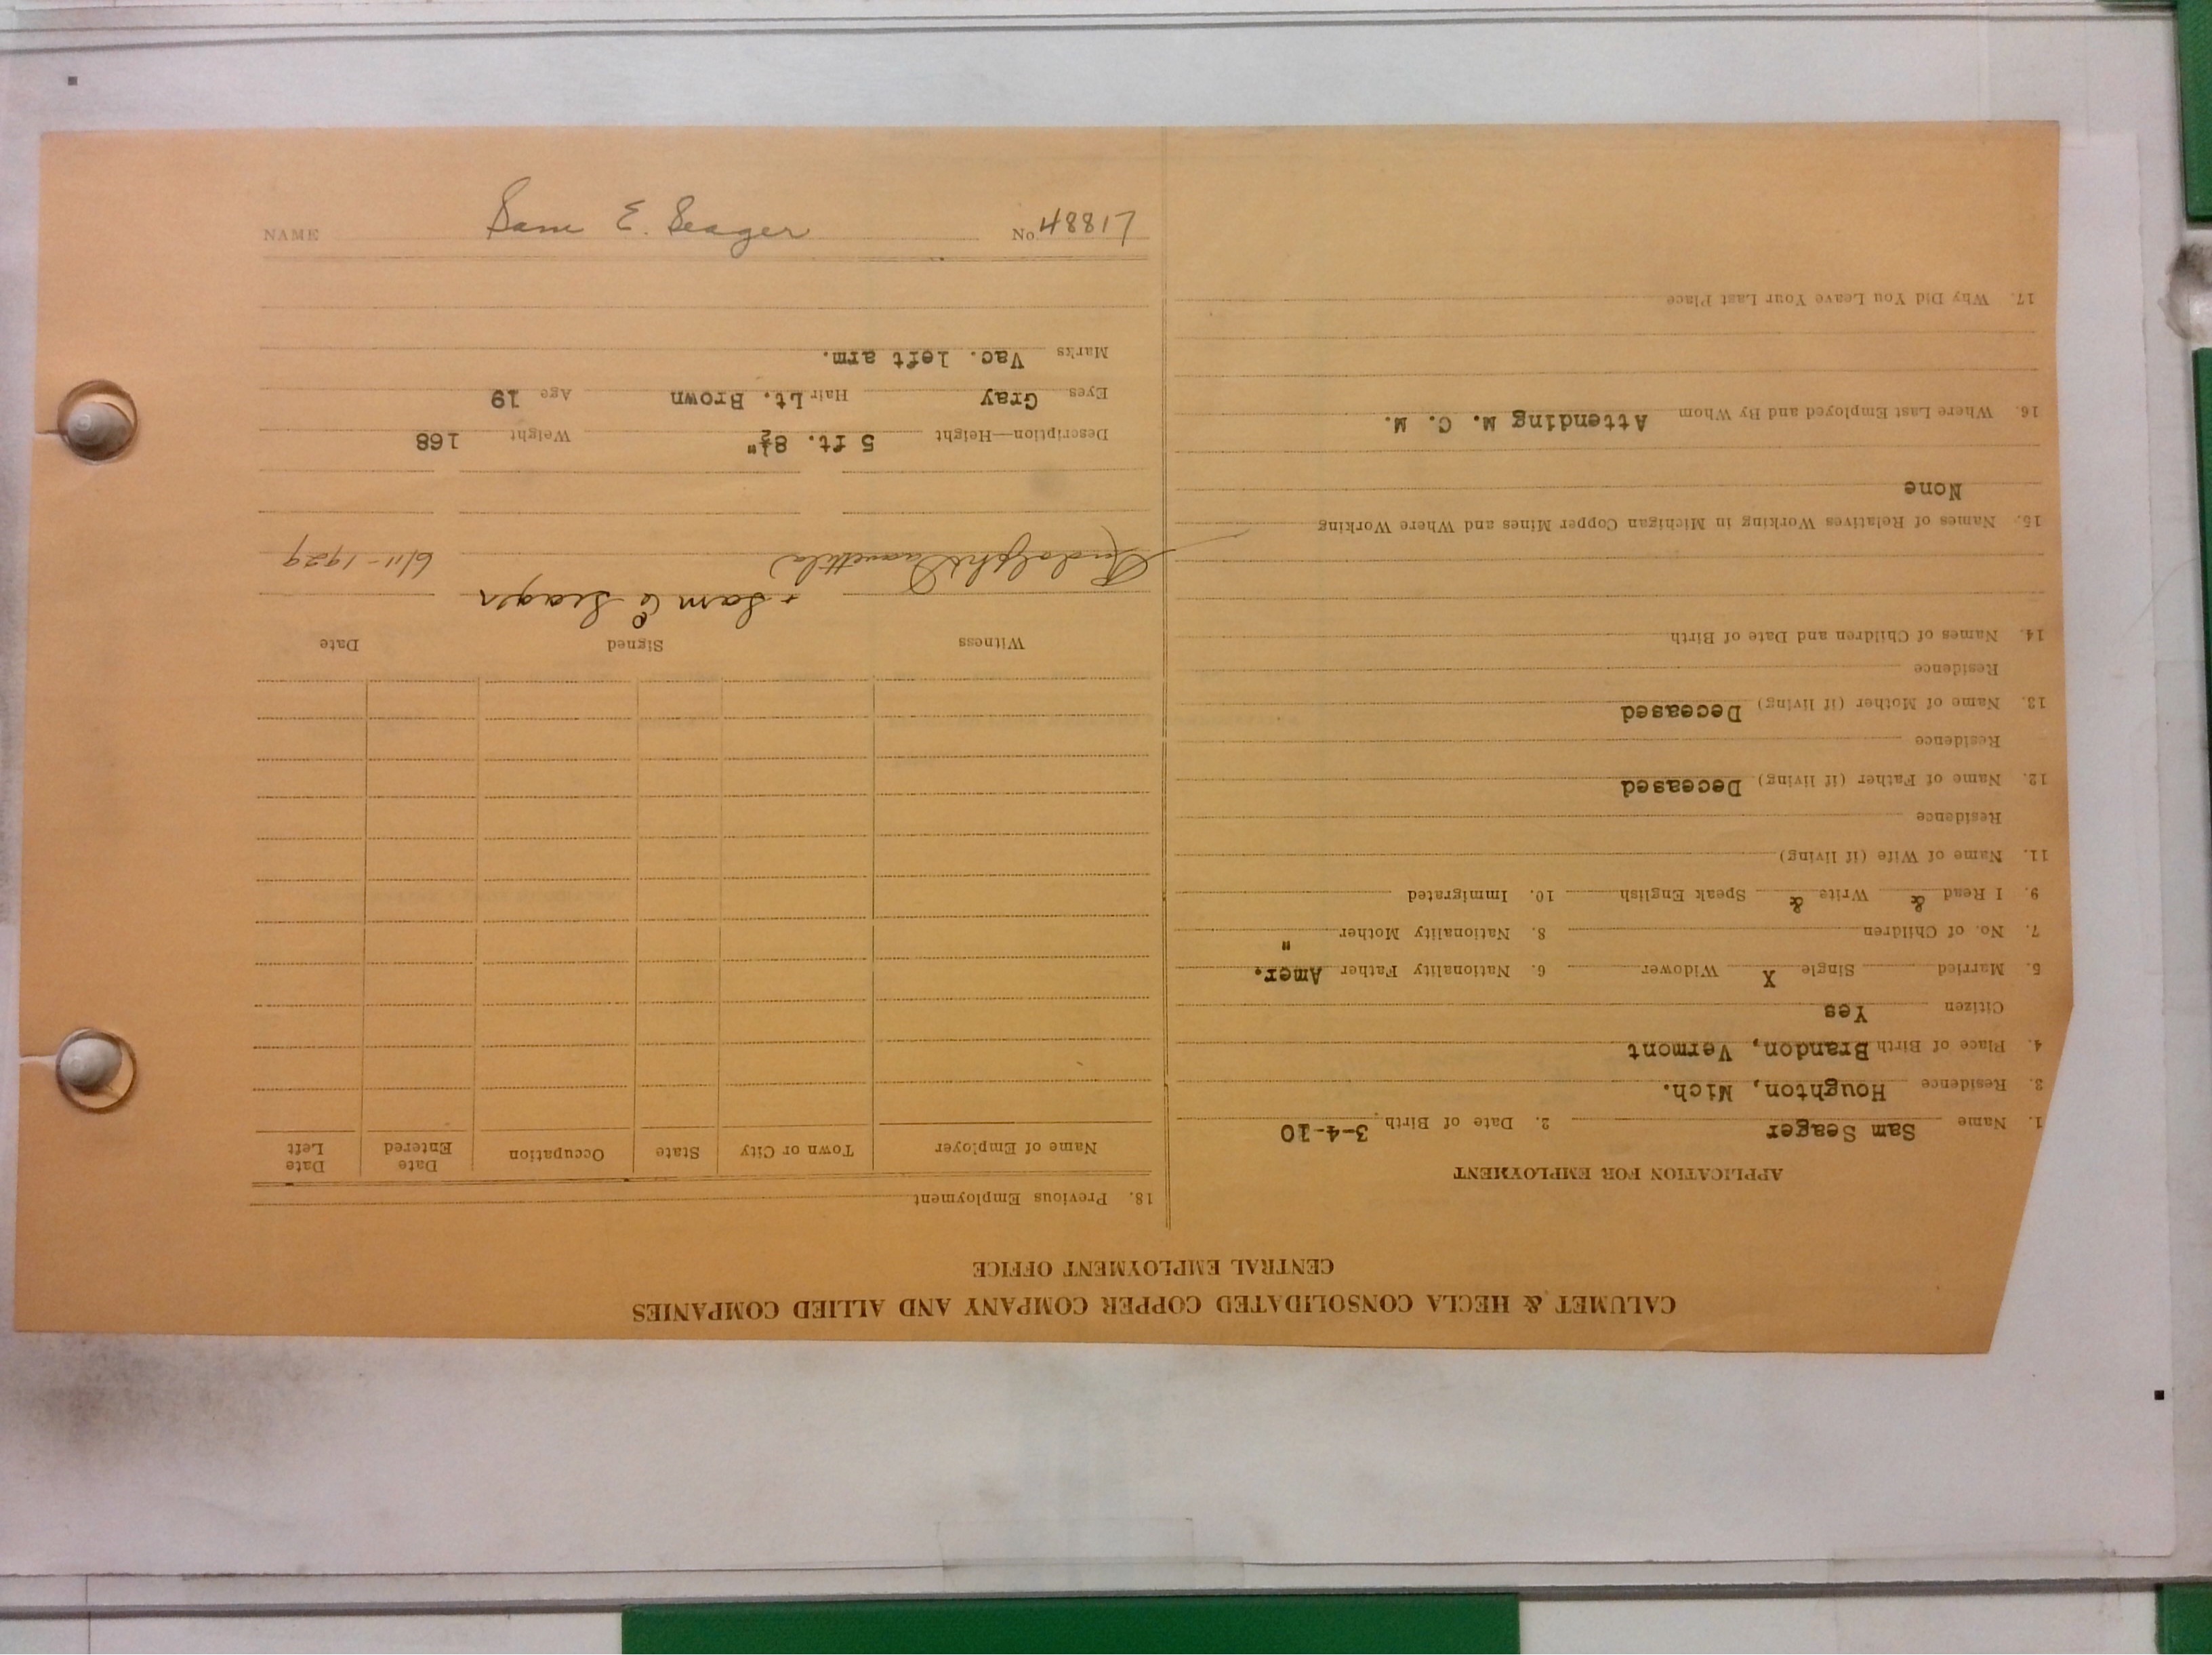 NAME Sam E. Seager No 48817
CALUMET & HECLA CONSOLIDATED COPPER COMPANY AND ALLIED COMPANIES
CENTRAL EMPLOYMENT OFFICE
APPLICATION FOR EMPLOYMENT
1. Name Sam Seager 2. Date of Birth 3-4-10
3. Residence Houghton, Mich.
4. Place of Birth Brandon, Vermont
Citizen Yes
5. Married Single X Widower 6. Nationality Father Amer.
7. No. of Children 8. Nationality Mother "
9. I Read & Write & Speak English 10. Immigrated
11. Name of Wife (if living)
Residence
12. Name of Father (if living) Deceased
Residence
13. Name of Mother (if living) Deceased
Residence
14. Names of Children and Date of Birth
15. Names of Relatives Working in Michigan Copper Mines and Where Working
None
16. Where Last Employed and By Whom Attending M. C. M.
17. Why Did You Leave Your Last Place
18. Previous Employment
Name of Employer Town or City State Occupation Date Entered Date Left
Witness Signed Date
Rudolph Sam E Seager 6/11-1929
Description—Height 5 ft. 8½" Weight 168
Eyes Gray Hair Lt. Brown Age 19
Marks Vac. left arm.